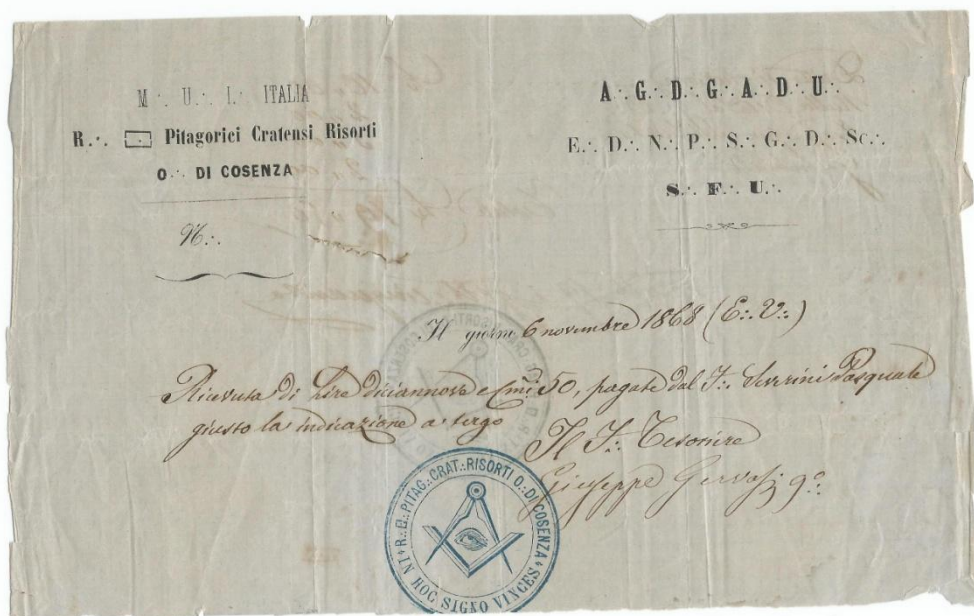 M∴ U∴ I∴ ITALIA
R∴ Pitagorici Cratensi Risorti
O∴ DI COSENZA
N∴
A∴ G∴ D∴ G∴ A∴ D∴ U∴
E∴ D∴ N∴ P∴ S∴ G∴ D∴ Sc∴
S∴ F∴ U∴
Il giorno 6 novembre 1868 (E∴ V∴)
Ricevuta di Lire diciannove e Cmi 50, pagate dal F∴ Severini Pasquale
giusto la indicazione a tergo
Il F∴ Tesoriere
Giuseppe Gervasi
R∴ PITAG∴ CRAT∴ RISORTI O∴ DI COSENZA
IN HOC SIGNO VINCES